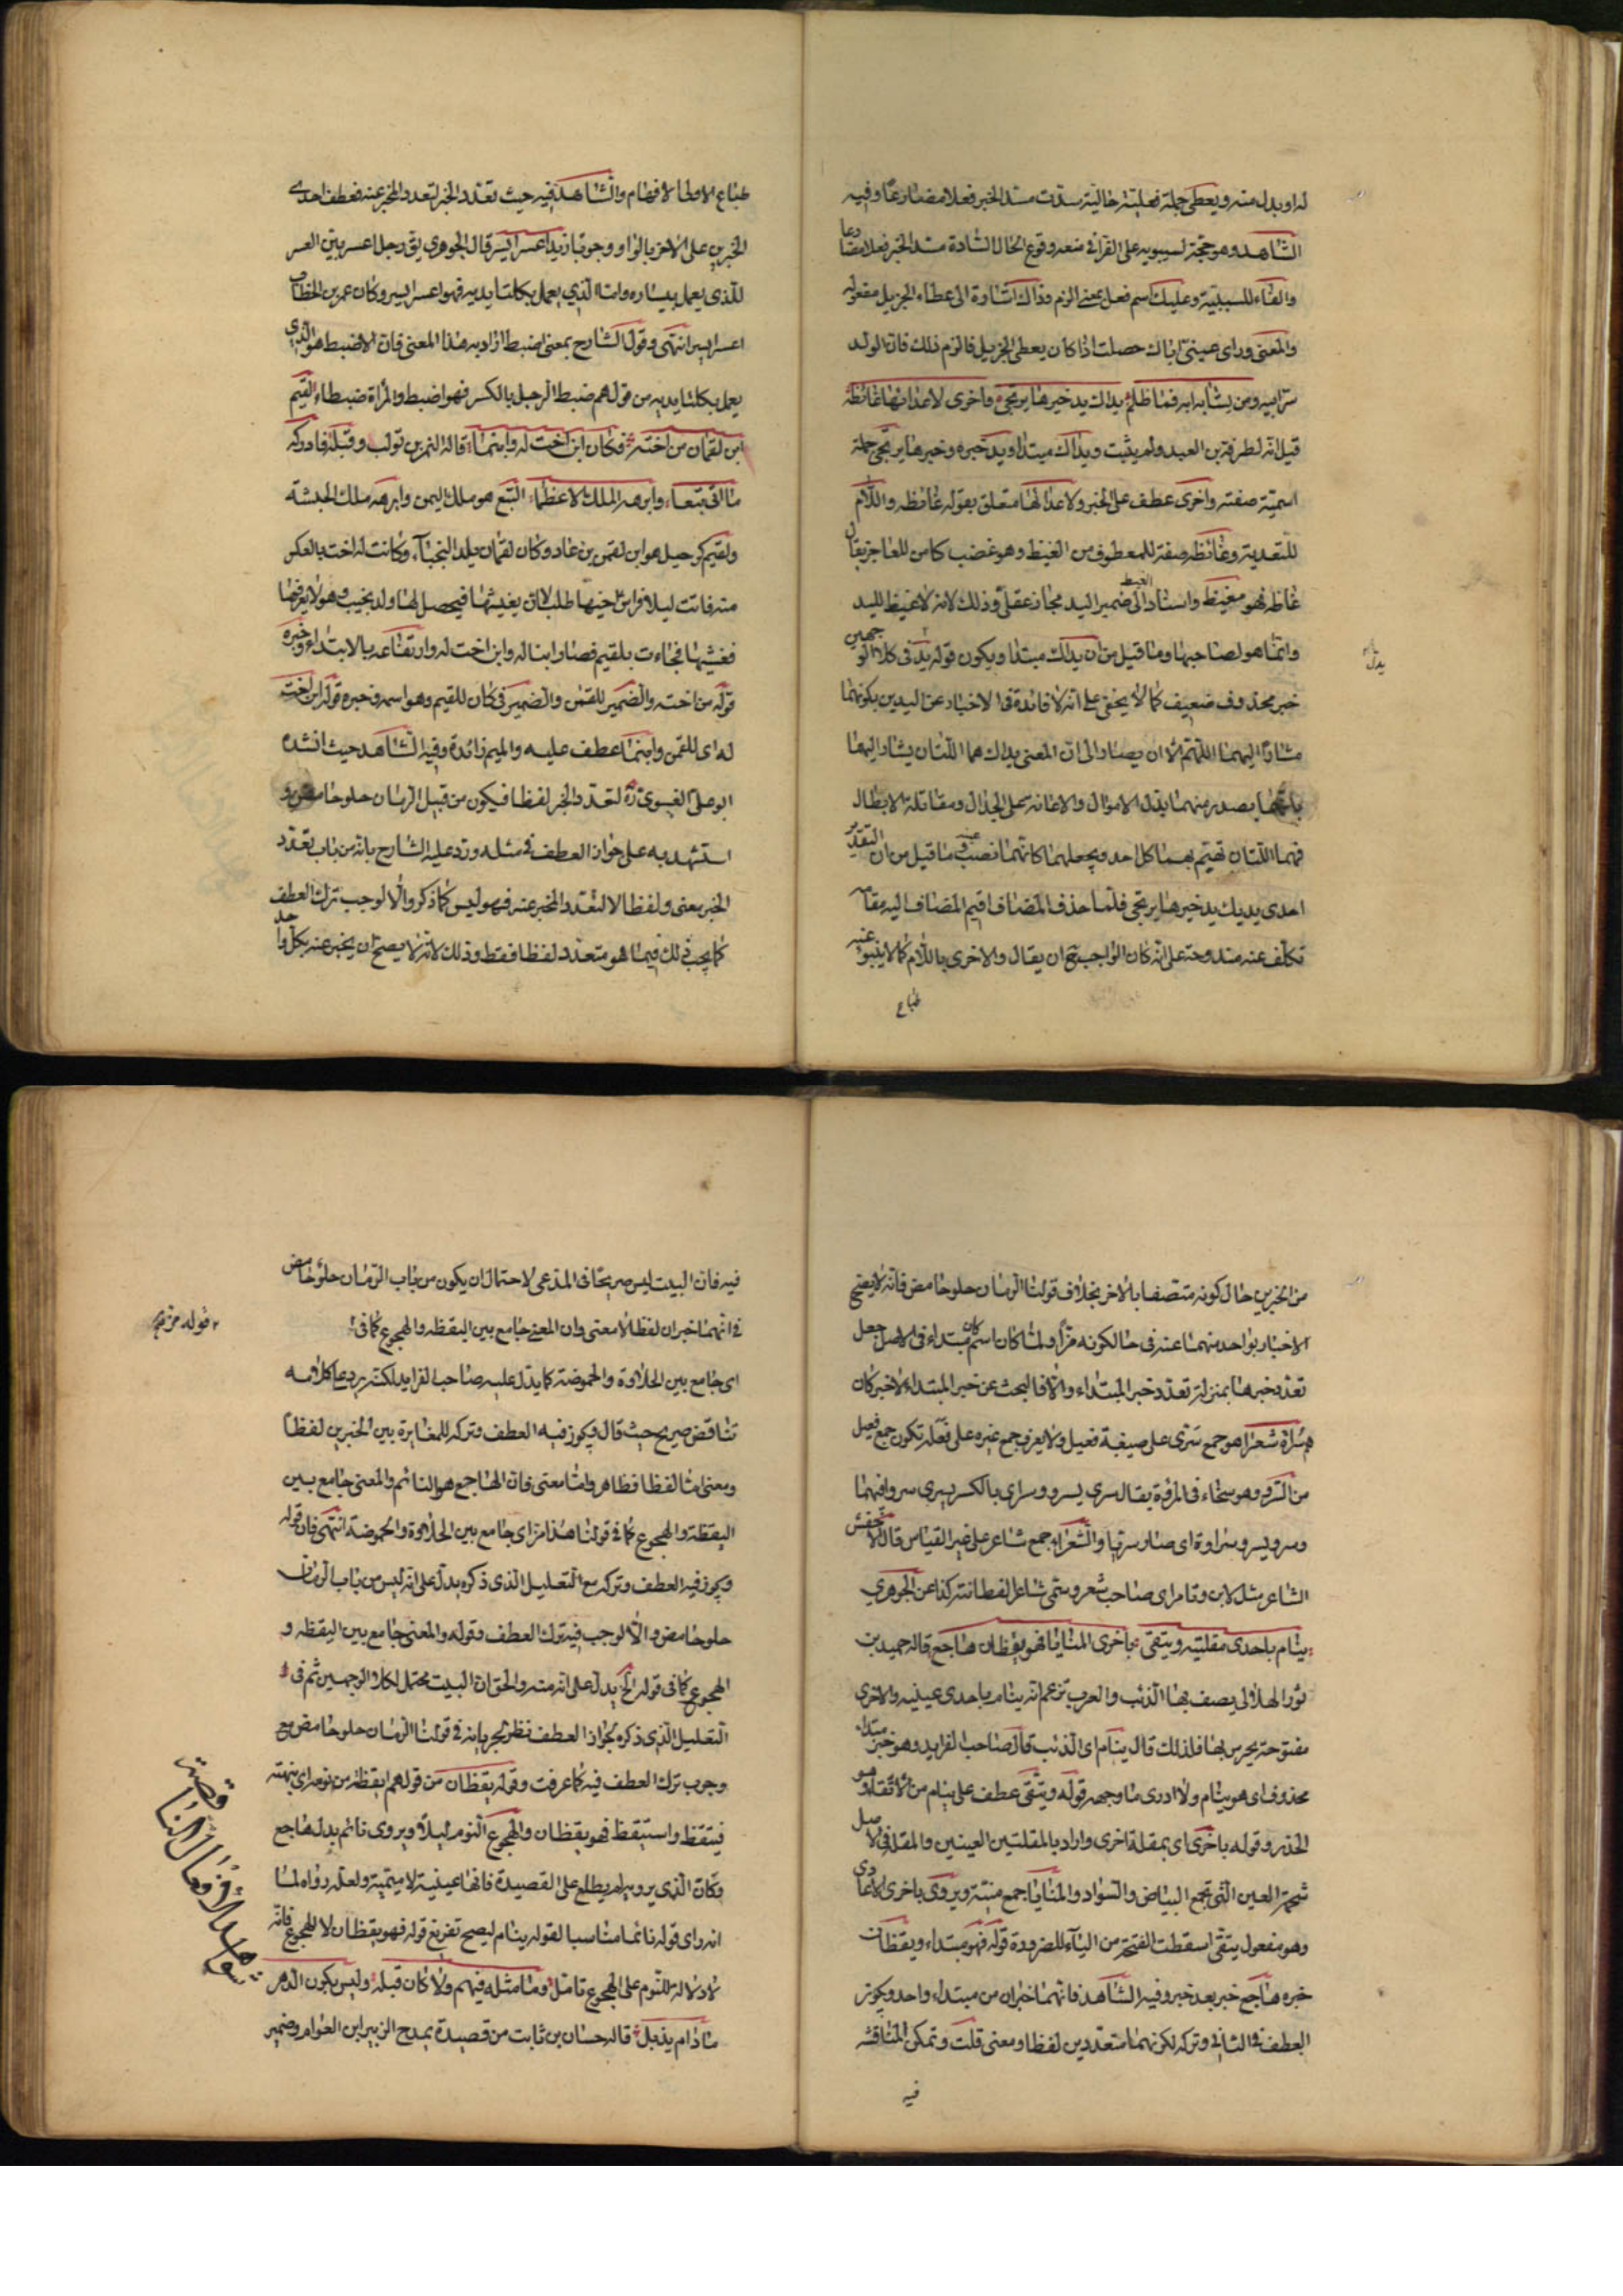 له او بدل منه ويعطى جملة فعلية حالية سدت مسد الخبر فعلا مضارعا وفيه
الشاهد وهو حجة لسيبويه على الفراء في منعه وقوع الحال السادة مسد الخبر فعلا مضارعا
والفاء للسببية وعليك اسم فعل بمعنى الزم وذاك اشارة الى عطاء الجزيل مفعوله
والمعنى وراى عينى اباك حصلت اذا كان يعطى الجزيل فالزم ذلك فان الولد
سر ابيه ومن يشابه ابه فما ظلم يداك يد خيرها يرتجى واخرى لاعدائها غائظة
قيل انه لطرفة بن العبد ولم يثبت ويداك مبتدا ويد خبره وخيرها يرتجى جملة
اسمية صفته واخرى عطف على الخبر ولاعدائها متعلق بقوله غائظه واللام
للتعدية وغائظه صفة للمعطوف من الغيظ وهو غضب كامن للعاجز يقال
غاظه فهو مغيظ واسناد الغيظ الى ضمير اليد مجاز عقلى وذلك لانه لا غيظ لليد
وانما هو لصاحبها وما قيل من ان يداك مبتدا ويكون قوله يد فى كلا الوجهين
يدل
خبر محذوف ضعيف كما لا يخفى على انه لا فائدة فى الاخبار عن اليدين بكونهما
مشارا اليهما اللهم الا ان يصار الى ان المعنى يداك هما اللتان يشار اليهما
بانهما يصدر منهما بذل الاموال والاعانة على الجدال ومقاتلة الابطال
فهما اللتان تهيم بهما كل احد ويجعلهما كانهما نصب عينيه وما قيل من ان التقدير
احدى يديك يد خيرها يرتجى فلما حذف المضاف اقيم المضاف اليه مقامه
تكلف عنه مندوحة على انه كان الواجب ح ان يقال والاخرى باللام كما لا ينبو عنه
طباع
طباع الاولى الافهام والشاهد فيه حيث تعدد الخبر لتعدد المخبر عنه فعطف احدى
الخبرين على الاخر بالواو وجوبا زيد اعسر ايسر قال الجوهرى يق رجل اعسر بين العسر
للذى يعمل بيساره واما الذى يعمل بكلتا يديه فهو اعسر ايسر وكان عمر بن الخطاب
اعسر ايسر انتهى وقول الشارح بمعنى اضبط اراد به هذا المعنى فان الاضبط هو الذى
يعمل بكلتا يديه من قولهم ضبط الرجل بالكسر فهو اضبط والمراة ضبطاء لقيم
ابن لقمان من اخته فكان ابن اخت له وابنما قاله النمر بن تولب وقبله فادركه
ما اتى تبعا وابرهه الملك الاعظما التبع هو ملك اليمن وابرهه ملك الحبشة
ولقيم كرحيل هو ابن لقمن بن عاد وكان لقمان يلد النجباء وكانت له اخت بالعكس
منه فاتت ليلا فراش اخيها طلبا لان يغشيها فيحصل لها ولد نجيب وهو لا يعرفها
فغشيها فجاءت بلقيم فصار ابنا له وابن اخت له وارتفاعه بالابتداء وخبره
قوله من اخته والضمير للقمن والضمير فى كان للقيم وهو اسمه وخبره قوله ابن اخت
له اى للقمن وابنما عطف عليه والميم زائدة وفيه الشاهد حيث انشده
ابو على الفسوى ره لتعدد الخبر لفظا فيكون من قبيل الرمان حلو حامض و
استشهد به على جواز العطف فى مثله ورد عليه الشارح بانه من باب تعدد
الخبر معنى ولفظا لا لتعدد المخبر عنه فهو ليس كما ذكر والا لوجب ترك العطف
كما يجب ذلك فيما هو متعدد لفظا فقط وذلك لانه لا يصح ان يخبر عنه بكل واحد
من الخبرين حال كونه متصفا بالاخر بخلاف قولنا الرمان حلو حامض فانه لا يصح
الاخبار بواحد منهما عنه فى حالكونه مزا ولما كان اسم كان مبتداء فى الاصل جعل
تعدد خبرها بمنزلة تعدد خبر المبتداء والا فالبحث عن خبر المبتداء لا خبر كان
هم سراة شعراء هو جمع سرى على صيغة فعيل ولا يعرف جمع غيره على فعلة تكون جمع فعيل
من السرو وهو سخاء فى المروة يقال سرى يسرو وسرى بالكسر يسرى سروا فيهما
وسرو يسرو سراوة اى صار سريا والشعراء جمع شاعر على غير القياس قال الاخفش
الشاعر مثل لابن وتامر اى صاحب شعر وسمى شاعرا لفطانته كذا عن الجوهرى
ينام باحدى مقلتيه ويتقى باخرى المنايا فهو يقظان هاجع قاله حميد بن
ثور الهلالى يصف بها الذئب والعرب تزعم انه ينام باحدى عينيه والاخرى
مفتوحة يحرس بها فلذلك قال ينام اى الذئب قال صاحب الفرايد وهو خبر مبتداء
محذوف اى هو ينام ولا ادرى ما وجهه قوله ويتقى عطف على ينام من الاتقاء وهو
الحذر وقوله باخرى اى بمقلة اخرى واراد بالمقلتين العينين والمقلة فى الاصل
شحمة العين التى تجمع البياض والسواد والمنايا جمع منية ويروى باخرى الاعادى
وهو مفعول يتقى اسقطت الفتحة من الياء للضرورة قوله فهو مبتداء ويقظان
خبره هاجع خبر بعد خبر وفيه الشاهد فانهما خبران من مبتداء واحد ويجوز
العطف فى الثانى وتركه لكونهما متعددين لفظا ومعنى قلت وتمكن المناقشة
فيه
فيه فان البيت ليس صريحا فى المدعى لاحتمال ان يكون من باب الرمان حلو حامض
فى انهما خبران لفظا لا معنى وان المعنى جامع بين اليقظه والهجوع كما فى
قوله مز فى
اى جامع بين الحلاوة والحموضة كما يدل عليه صاحب الفرايد لكنه يرد على كلامه
تناقض صريح حيث قال ويجوز فيه العطف وتركه للمغايرة بين الخبرين لفظا
ومعنى اما لفظا فظاهر واما معنى فان الهاجع هو النائم والمعنى جامع بين
اليقظة والهجوع كما فى قولنا هذا مز اى جامع بين الحلاوة والحموضة انتهى فان قوله
ويجوز فيه العطف وتركه مع التعليل الذى ذكره يدل على انه ليس من باب الرمان
حلو حامض والا لوجب فيه ترك العطف وقوله والمعنى جامع بين اليقظه و
الهجوع كما فى قوله الخ يدل على انه منه والحق ان البيت محتمل لكلا الوجهين ثم فى
التعليل الذى ذكره لجواز العطف نظر لجريانه فى قولنا الرمان حلو حامض مع
وجوب ترك العطف فيه كما عرفت وقوله يقظان من قولهم ايقظه من نومه اى نبهته
فتيقظ واستيقظ فهو يقظان والهجوع النوم ليلا ويروى نائم بدل هاجع
وكان الذى يرويه لم يطلع على القصيدة فانها عينية لا ميمية ولعله رواه لما
انه راى قوله نائما مناسبا لقوله ينام ليصح تفريع قوله فهو يقظان لا للهجوع فانه
لا دلالة للنوم على الهجوع تامل وما مثله فيهم ولا كان قبله وليس يكون الدهر
ما دام يذبل قاله حسان بن ثابت من قصيدة يمدح الزبير ابن العوام وضمير
شواهد الافعال الناقصة